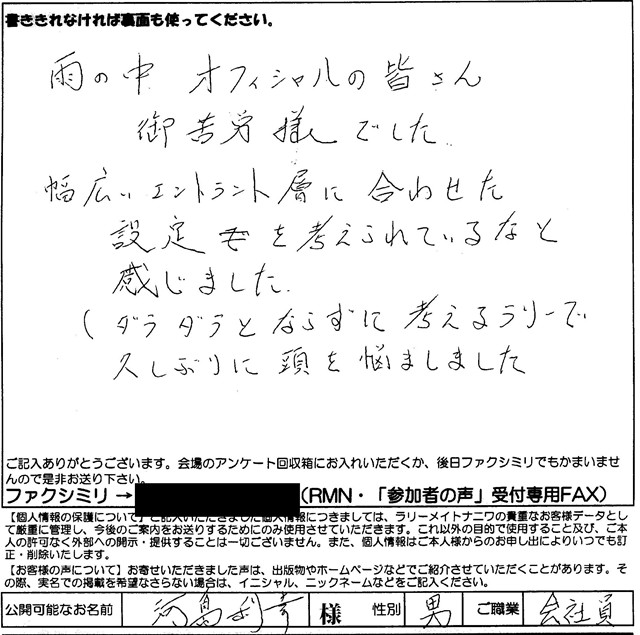 書ききれなければ裏面も使ってください。
雨の中 オフィシャルの皆さん
御苦労様でした
幅広いエントラント層に合わせた
設定を考えられているなと
感じました.
(ダラダラとならずに考えるラリーで
久しぶりに頭を悩ましました
ご記入ありがとうございます。会場のアンケート回収箱にお入れいただくか、後日ファクシミリでもかまいませ
んので是非お送り下さい。
ファクシミリ→ (RMN・「参加者の声」受付専用FAX)
【個人情報の保護について】ご記入いただきました個人情報につきましては、ラリーメイトナニワの貴重なお客様データとし
て厳重に管理し、今後のご案内をお送りするためにのみ使用させていただきます。これ以外の目的で使用すること及び、ご本
人の許可なく外部への開示・提供することは一切ございません。また、個人情報はご本人様からのお申し出によりいつでも訂
正・削除いたします。
【お客様の声について】お寄せいただきました声は、出版物やホームページなどでご紹介させていただくことがあります。そ
の際、実名での掲載を希望なさらない場合は、イニシャル、ニックネームなどをご記入ください。
公開可能なお名前 河島利幸 様 性別 男 ご職業 会社員